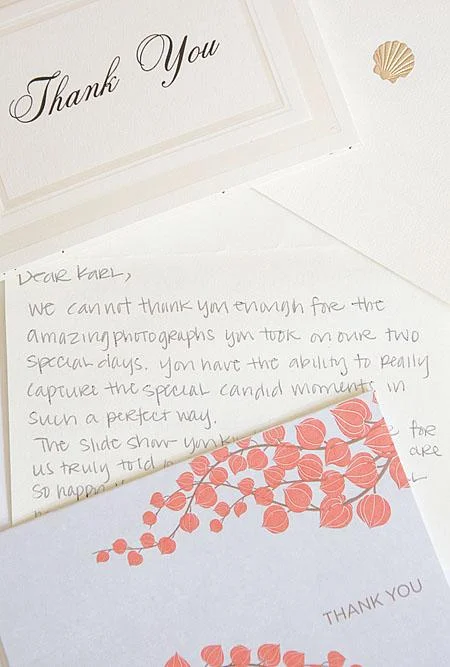 Thank You
Dear Karl,
We cannot thank you enough for the
amazing photographs you took on our two
special days. You have the ability to really
capture the special candid moments in
such a perfect way.
The slide show you for
us truly told are
so happy
THANK YOU